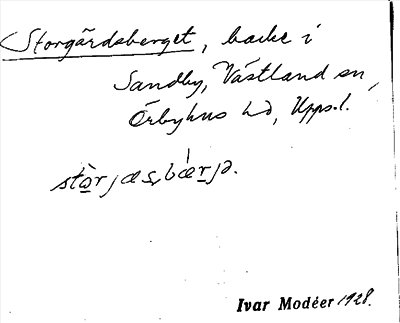 Storgårdsberget, backe i
Sandby, Västland sn,
Örbyhus hd, Upps. l.
Ivar Modéer 1928.